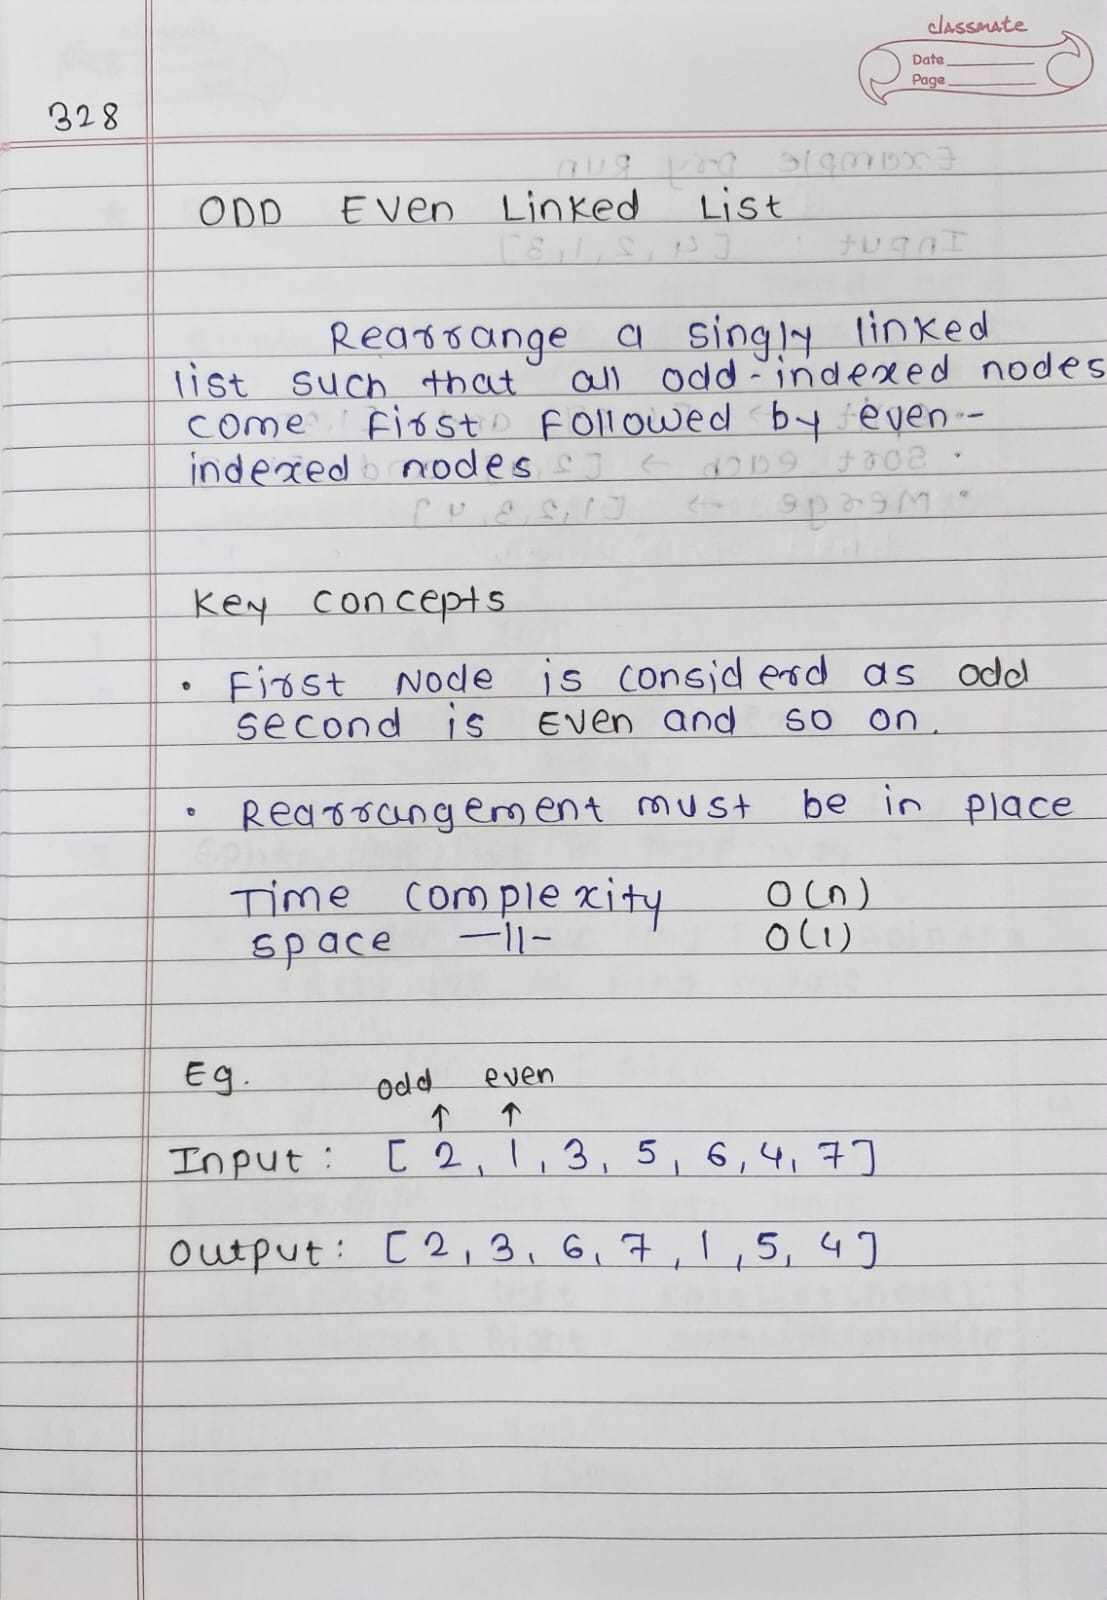 classmate
Date
Page
328
ODD Even Linked List
Rearrange a singly linked
list such that all odd-indexed nodes
come First Followed by even-
indexed nodes
Key concepts
• First Node is considerd as odd
second is Even and so on.
• Rearrangement must be in place
Time complexity O(n)
space —11— O(1)
Eg. odd even
↑ ↑
Input: [ 2, 1, 3, 5, 6, 4, 7]
Output: [ 2, 3, 6, 7, 1, 5, 4]